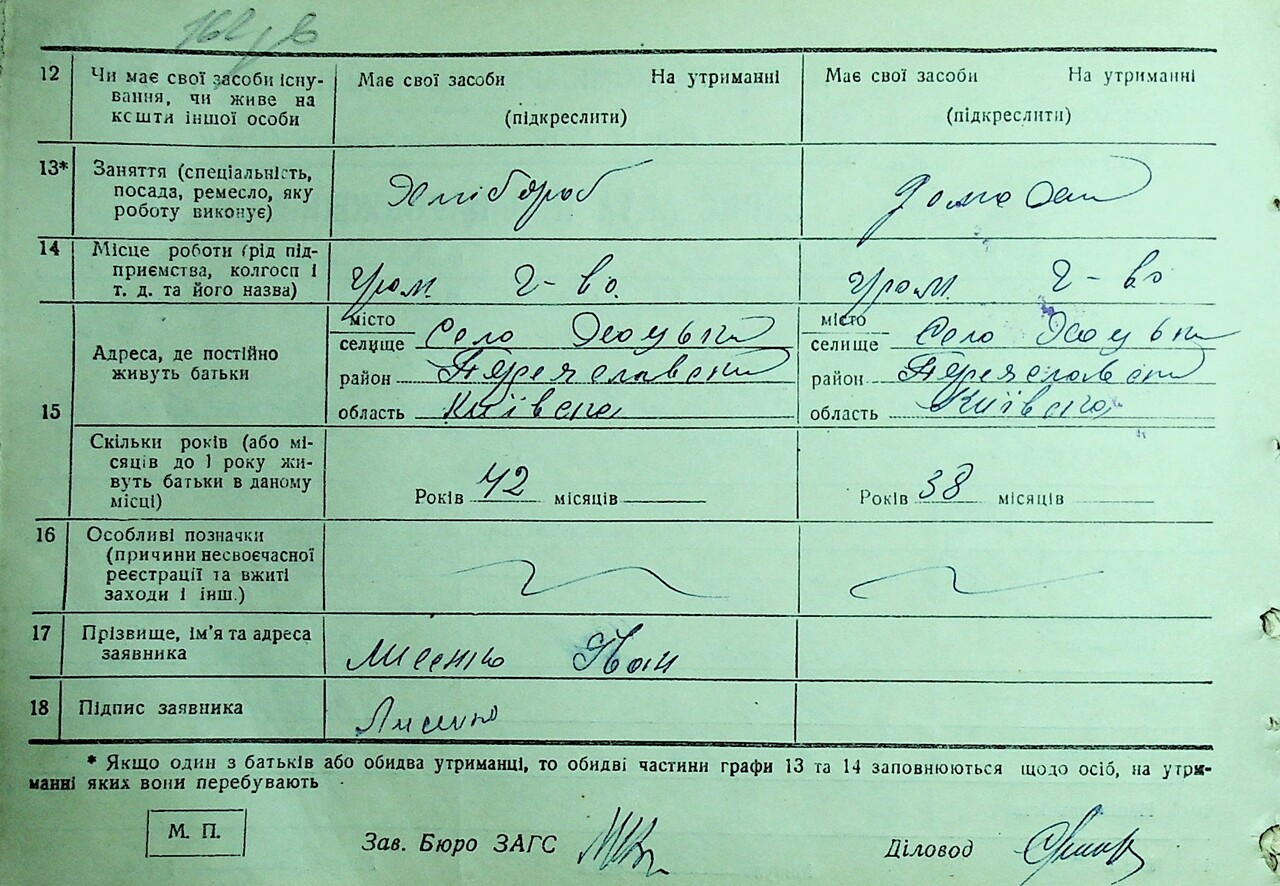 12 Чи має свої засоби існування, чи живе на кошти іншої особи
Має свої засоби На утриманні
(підкреслити)
Має свої засоби На утриманні
(підкреслити)
13* Заняття (спеціальність,
посада, ремесло, яку
роботу виконує)
Хлібороб
Домохоз
14 Місце роботи (рід під-
приємства, колгосп і
т. д. та його назва)
Гром. г-во.
Гром. г-во
15 Адреса, де постійно
живуть батьки
місто
селище Село
район Переяславский
область Київска
місто
селище Село
район Переяславский
область Київска
Скільки років (або мі-
сяців до 1 року жи-
вуть батьки в даному
місці)
Років 42 місяців
Років 38 місяців
16 Особливі позначки
(причини несвоєчасної
реєстрації та вжиті
заходи і інш.)
17 Прізвище, ім’я та адреса
заявника
Лисенко Иван
18 Підпис заявника
Лисенко
* Якщо один з батьків або обидва утриманці, то обидві частини графи 13 та 14 заповнюються щодо осіб, на утри-
манні яких вони перебувають
М. П.
Зав. Бюро ЗАГС
Діловод